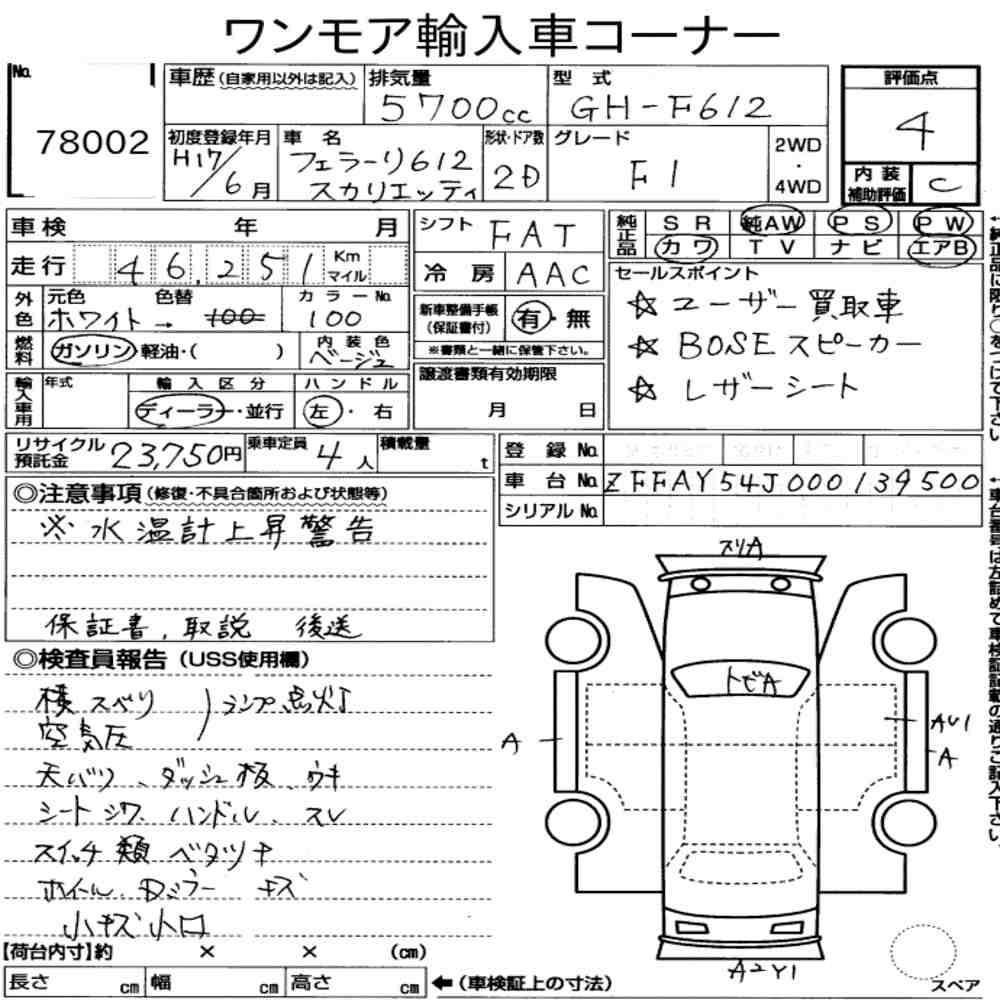 ワンモア輸入車コーナー
No.
78002
車歴 (自家用以外は記入)
排気量
5700cc
型式
GH-F612
初度登録年月
H17/6月
車名
フェラーリ612
スカリエッティ
形状・ドア数
2D
グレード
F1
2WD
・
4WD
評価点
4
内装
補助評価
C
車検 年 月
走行 46,251 Km
マイル
外色
元色 色替
ホワイト → 100
カラーNo.
100
燃料
ガソリン・軽油・( )
内装色
ベージュ
輸入車用
年式
輸入区分
ディーラー・並行
ハンドル
左・右
シフト
FAT
冷房
AAC
新車整備手帳
(保証書付)
有・無
※書類と一緒に保管下さい。
譲渡書類有効期限
月 日
純正品
SR 純AW PS PW
カワ TV ナビ エアB
セールスポイント
☆ ユーザー買取車
☆ BOSEスピーカー
☆ レザーシート
リサイクル
預託金
23,750円
乗車定員
4人
積載量
t
登録No.
車台No.
ZFFAY54J000139500
シリアルNo.
◎注意事項 (修復・不具合箇所および状態等)
※ 水温計上昇警告
保証書、取説 後送
◎検査員報告 (USS使用欄)
横スベリ
空気圧
ランプ点灯
天バリ、ダッシュ板 ウキ
シートシワ、ハンドル、スレ
スイッチ類 ベタツキ
ホイール、Dミラー キズ
小キズ小凹
スリA
トビA
A
AU1
A
A2Y1
スペア
【荷台内寸】約 × × (cm)
長さ cm 幅 cm 高さ cm
←(車検証上の寸法)
←純正品に限り○をつけて下さい。
←車台番号は左詰めで車検証記載の通りご記入下さい。